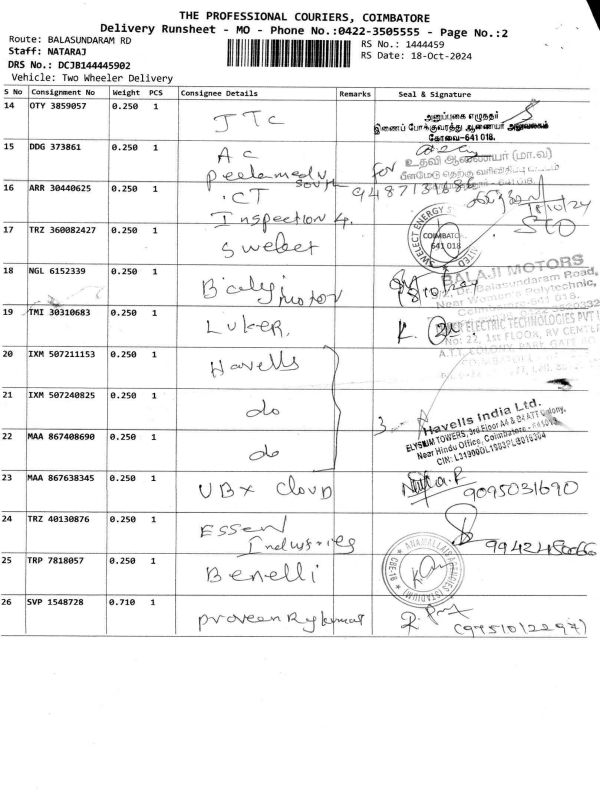 THE PROFESSIONAL COURIERS, COIMBATORE
Delivery Runsheet - MO - Phone No.:0422-3505555 - Page No.:2
Route: BALASUNDARAM RD
Staff: NATARAJ
DRS No.: DCJB144445902
Vehicle: Two Wheeler Delivery
RS No.: 1444459
RS Date: 18-Oct-2024
S No Consignment No Weight PCS Consignee Details Remarks Seal & Signature
14 OTY 3859057 0.250 1 JTC
அனுப்புகை எழுநதர்
இணைப் போக்குவரத்து ஆணையர் அலுவலகம்
கோவை-641 018.
15 DDG 373861 0.250 1 AC
Peelamedu
South
for உதவி ஆணையர் (மா.வ)
16 ARR 30440625 0.250 1 CT
Inspection 4.
18/10/24
STO
17 TRZ 360082427 0.250 1 Swelect
SWELECT ENERGY
COIMBATORE
641 018
18 NGL 6152339 0.250 1 Balaji Motor
BALAJI MOTORS
Balasundaram Road,
Near Women's Polytechnic,
Coimbatore-641 018.
19 TMI 30310683 0.250 1 Luker.
K.
ELECTRIC TECHNOLOGIES PVT
No: 22, 1st FLOOR, RV CENTER
20 IXM 507211153 0.250 1 Havells
21 IXM 507240825 0.250 1 do
22 MAA 867408690 0.250 1 do
3
Havells India Ltd.
ELYSIUM TOWERS, 3rd Floor A4 & B4 ATT Colony,
Near Hindu Office, Coimbatore - 641018
23 MAA 867638345 0.250 1 UBX Cloud
9095031690
24 TRZ 40130876 0.250 1 Essen
Industries
25 TRP 7818057 0.250 1 Benelli
ANAMALLAIS AGENCIES (STADIUM)
CBE-18
26 SVP 1548728 0.710 1 Praveen Raj kumar